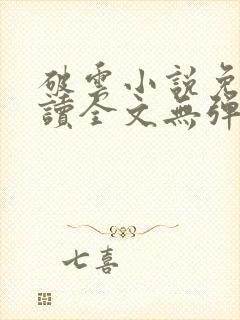 破雲小說免
讀全文無彈
七喜